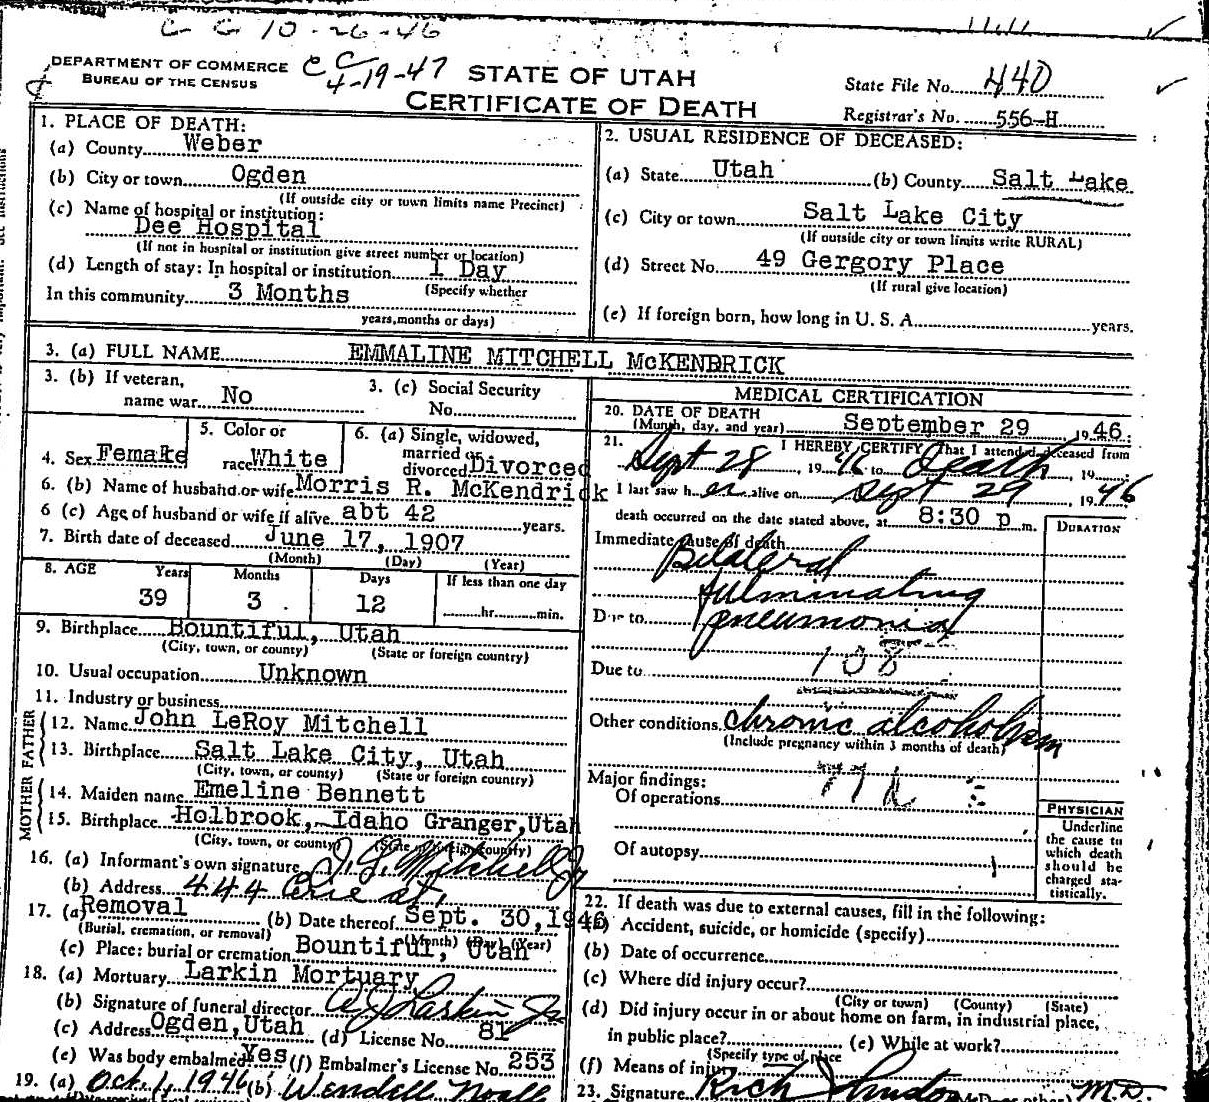 C C 10-26-46
DEPARTMENT OF COMMERCE
BUREAU OF THE CENSUS
CC 4-19-47
STATE OF UTAH
CERTIFICATE OF DEATH
State File No. 440
Registrar's No. 556-H
1. PLACE OF DEATH:
(a) County Weber
(b) City or town Ogden
(If outside city or town limits name Precinct)
(c) Name of hospital or institution:
Dee Hospital
(If not in hospital or institution give street number or location)
(d) Length of stay: In hospital or institution 1 Day
(Specify whether
In this community 3 Months
years, months or days)
2. USUAL RESIDENCE OF DECEASED:
(a) State Utah (b) County Salt Lake
(c) City or town Salt Lake City
(If outside city or town limits write RURAL)
(d) Street No. 49 Gergory Place
(If rural give location)
(e) If foreign born, how long in U. S. A. years.
3. (a) FULL NAME EMMALINE MITCHELL McKENDRICK
3. (b) If veteran,
name war No
3. (c) Social Security
No.
4. Sex Female
5. Color or
race White
6. (a) Single, widowed,
married or
divorced Divorced
6. (b) Name of husband or wife Morris R. McKendrick
6 (c) Age of husband or wife if alive abt 42 years.
7. Birth date of deceased June 17, 1907
(Month) (Day) (Year)
8. AGE Years Months Days If less than one day
39 3 12 hr. min.
9. Birthplace Bountiful, Utah
(City, town, or county) (State or foreign country)
10. Usual occupation Unknown
11. Industry or business
FATHER
12. Name John LeRoy Mitchell
13. Birthplace Salt Lake City, Utah
(City, town, or county) (State or foreign country)
MOTHER
14. Maiden name Emeline Bennett
15. Birthplace Holbrook, Idaho Granger, Utah
(City, town, or county) (State or foreign country)
16. (a) Informant's own signature J. L. Mitchell Jr
(b) Address 444 st.
17. (a) Removal (b) Date thereof Sept. 30, 1946
(Burial, cremation, or removal) (Month) (Day) (Year)
(c) Place: burial or cremation Bountiful, Utah
18. (a) Mortuary Larkin Mortuary
(b) Signature of funeral director Larkin Jr
(c) Address Ogden, Utah (d) License No. 81
(e) Was body embalmed Yes (f) Embalmer's License No. 253
19. (a) Oct. 1, 1946 (b) Wendell
MEDICAL CERTIFICATION
20. DATE OF DEATH
(Month, day, and year) September 29, 1946.
21. I HEREBY CERTIFY, That I attended deceased from
Sept 28, 1946 to Death, 19
I last saw her alive on Sept 29 1946
death occurred on the date stated above, at 8:30 p m.
DURATION
Immediate cause of death
Bilateral
fulminating
Due to pneumonia
108
Due to
Other conditions chronic alcoholism
(Include pregnancy within 3 months of death)
Major findings: 77
Of operations
Of autopsy
PHYSICIAN
Underline
the cause to
which death
should be
charged sta-
tistically.
22. If death was due to external causes, fill in the following:
(a) Accident, suicide, or homicide (specify)
(b) Date of occurrence
(c) Where did injury occur?
(City or town) (County) (State)
(d) Did injury occur in or about home on farm, in industrial place,
in public place? (e) While at work?
(Specify type of place
(f) Means of injury
23. Signature Rich Johnston M.D.